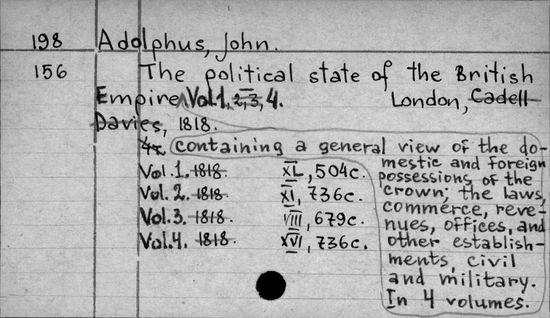 198 Adolphus, John.
156 The political state of the British
Empire Vol.1, 2, 3, 4. London, Cadell
Davies, 1818.
containing a general view of the do-
mestic and foreign
possessions of the
crown; the laws,
commerce, reve-
nues, offices, and
other establish-
ments, civil
and military.
In 4 volumes.
Vol.1. 1818. XL, 504c.
Vol.2. 1818. XI, 736c.
Vol.3. 1818. VIII, 679c.
Vol.4. 1818. XVI, 736c.